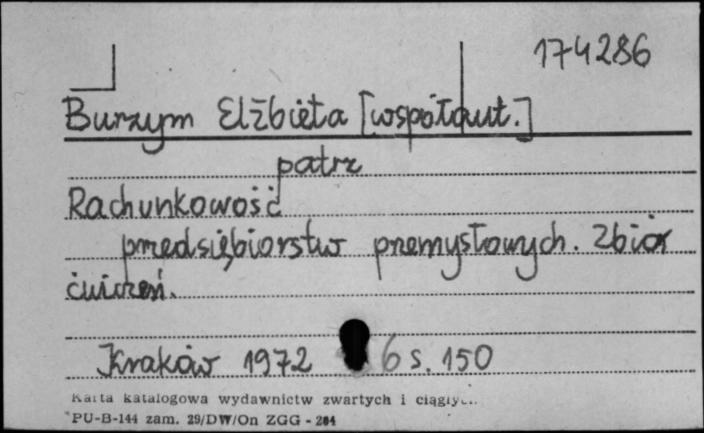 174286
Burzym Elżbieta [współaut.]
patrz
Rachunkowość
przedsiębiorstw przemysłowych. Zbiór
ćwiczeń.
Kraków 1972 6 s. 150
Karta katalogowa wydawnictw zwartych i ciągłych
PU-B-144 zam. 29/DW/On ZGG - 284